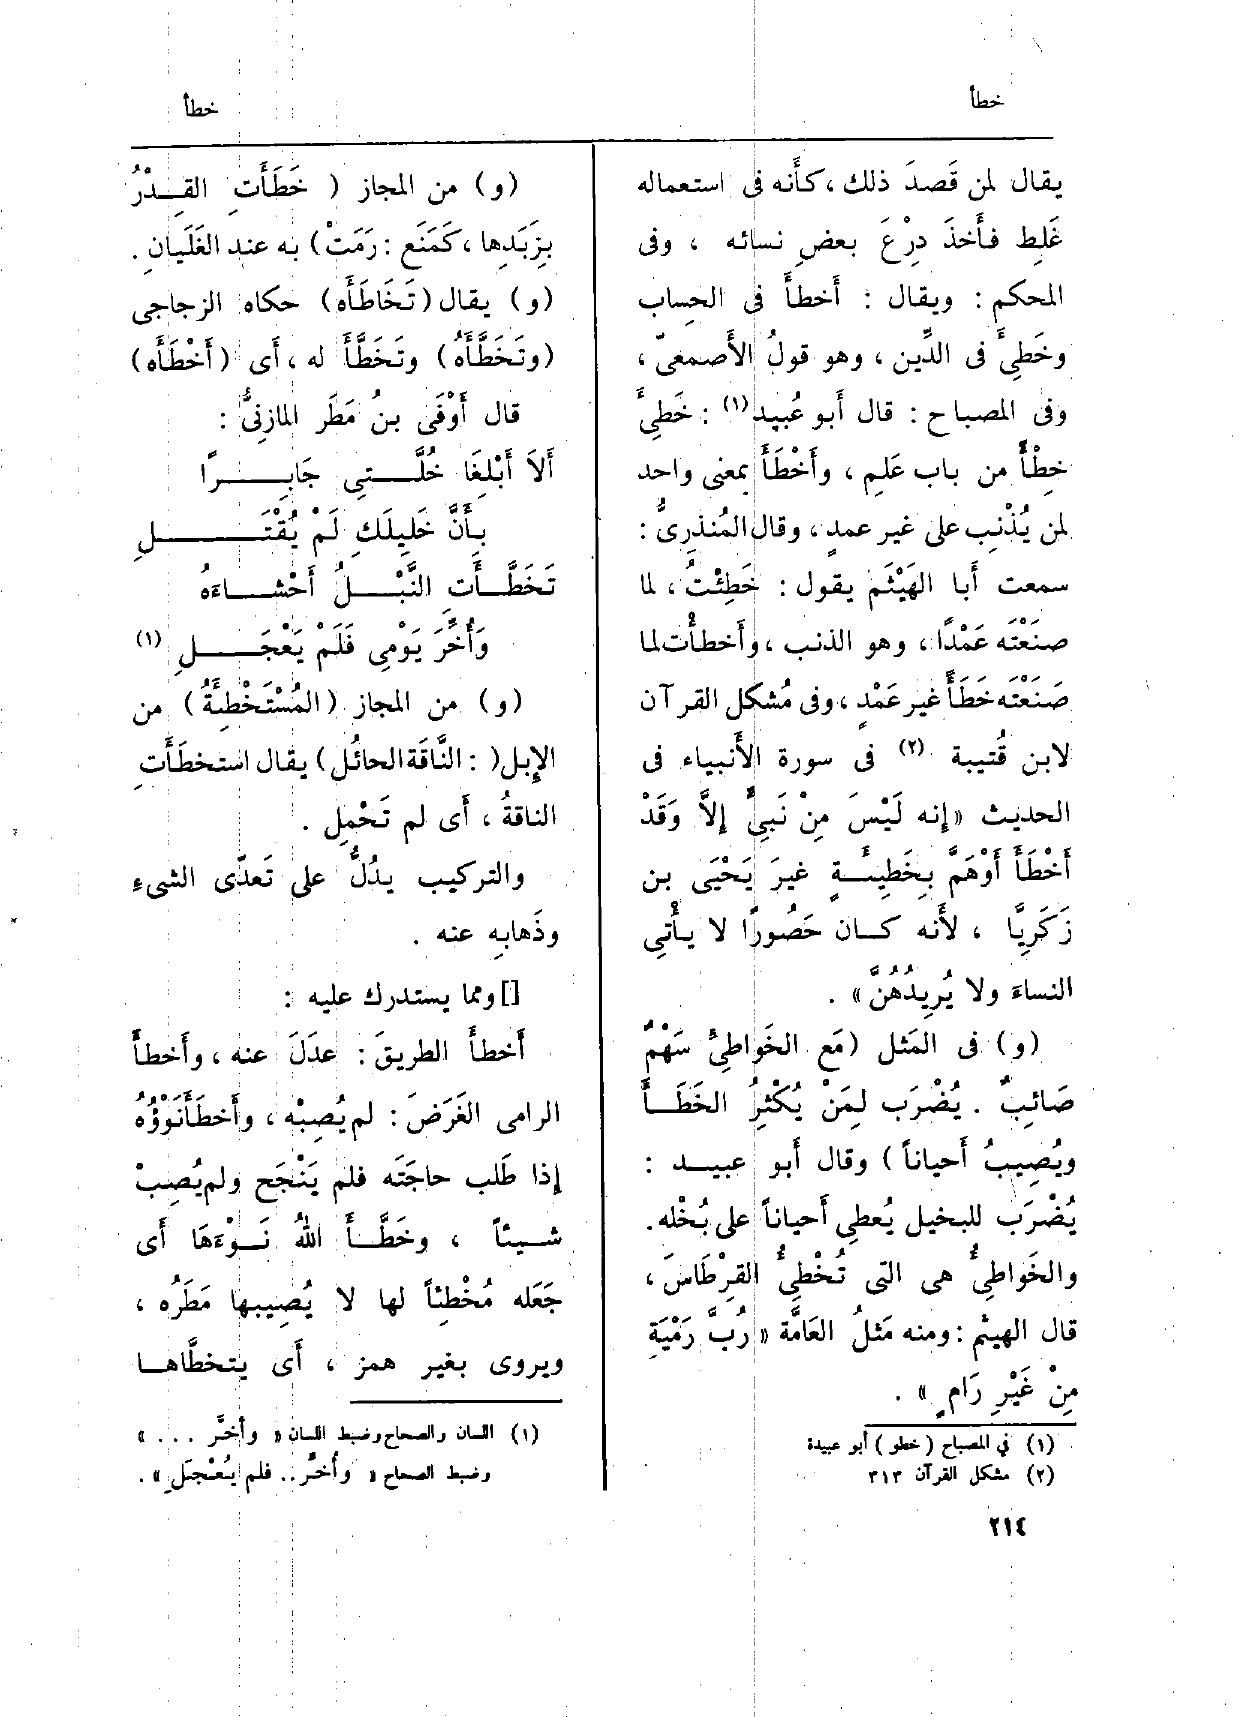 خطأ
خطأ
يقال لمن قَصدَ ذلك ، كأَنه فى استعماله
غَلِط فأَخذَ دِرْعَ بعضِ نسائه ، وفى
المحكم : ويقال : أَخطأَ فى الحِساب
وخَطِئَ فى الدِّين ، وهو قولُ الأَصمعىّ ،
وفى المصباح : قال أَبو عُبيد (١) : خَطِئَ
خِطْأً من باب عَلِم ، وأَخْطَأَ بمعنى واحد
لمن يُذْنِب على غير عمدٍ ، وقال المُنذرِىُّ :
سمعت أَبا الهَيْثَم يقول : خَطِئْتُ ، لما
صنَعْته عَمْدًا ، وهو الذنب ، وأَخطأْت لما
صَنَعْته خَطَأً غير عَمْدٍ ، وفى مُشكل القرآن
لابن قُتيبة (٢) فى سورة الأَنبياء فى
الحديث « إنه لَيْسَ مِنْ نَبِىٍّ إلاَّ وَقَدْ
أَخْطَأَ أَوْهَمَّ بِخَطِيئَةٍ غيرَ يَحْيَى بن
زَكَرِيَّا ، لأَنه كان حَصُورًا لا يأْتِى
النساءَ ولا يُرِيدُهُنَّ » .
(و) فى المَثل (مَع الخَواطِئُ سَهْمٌ
صَائِبٌ . يُضْرَب لِمَنْ يُكْثِرُ الخَطَأَ
ويُصِيبُ أَحياناً ) وقال أَبو عبيد :
يُضْرَب للبخيل يُعطِى أَحياناً على بُخْله .
والخَواطِئُ هى التى تُخْطِئُ القِرْطَاسَ ،
قال الهيثم : ومنه مَثلُ العَامَّة « رُبَّ رَمْيَةٍ
مِنْ غَيْرِ رَامٍ » .
(١) فى المصباح ( خطو ) أبو عبيدة
(٢) مشكل القرآن ٣١٣
٢١٤
(و) من المجاز ( خَطَأَتِ القِدْرُ
بِزَبَدِها ، كَمَنَع : رَمَتْ) به عند الغَلَيانِ .
(و) يقال (تَخَاطَأَه) حكاه الزجاجى
(وتَخَطَّأَهُ) وتَخَطَّأَ له ، أَى (أَخْطَأَه)
قال أَوْفَى بنُ مَطَر المازنِىُّ :
أَلاَ أَبْلِغَا خُلَّتِى جَابِرًا
بأَنَّ خَلِيلَكِ لَمْ يُقْتَلِ
تَخَطَّأَتِ النَّبْلُ أَحْشاءَهُ
وَأُخِّرَ يَوْمِى فَلَمْ يَعْجَلِ (١)
(و) من المجاز (المُسْتَخْطِئَةُ) من
الإِبل( : النَّاقَة الحائل) يقال استخطَأَتِ
الناقةُ ، أَى لم تَحْمِل .
والتركيب يدُلُّ على تَعدّى الشىءِ
وذَهابِه عنه .
[] ومما يستدرك عليه :
أَخطأَ الطريقَ : عدَلَ عنه ، وأَخطأَ
الرامى الغَرَضَ : لم يُصِبْه ، وأَخطأَ نَوْؤُه
إذا طَلب حاجَتَه فلم يَنْجَح ولم يُصِبْ
شيئاً ، وخَطَّأَ اللهُ نَوْءَهَا أَى
جَعَله مُخْطِئاً لها لا يُصِيبها مَطَرُه ،
ويروى بغير همز ، أَى يتخطَّاها
(١) اللسان والصحاح وضبط اللسان « وأَخَّر . . . »
وضبط الصحاح « وأُخِّر .. فلم يُعْجَلِ » .